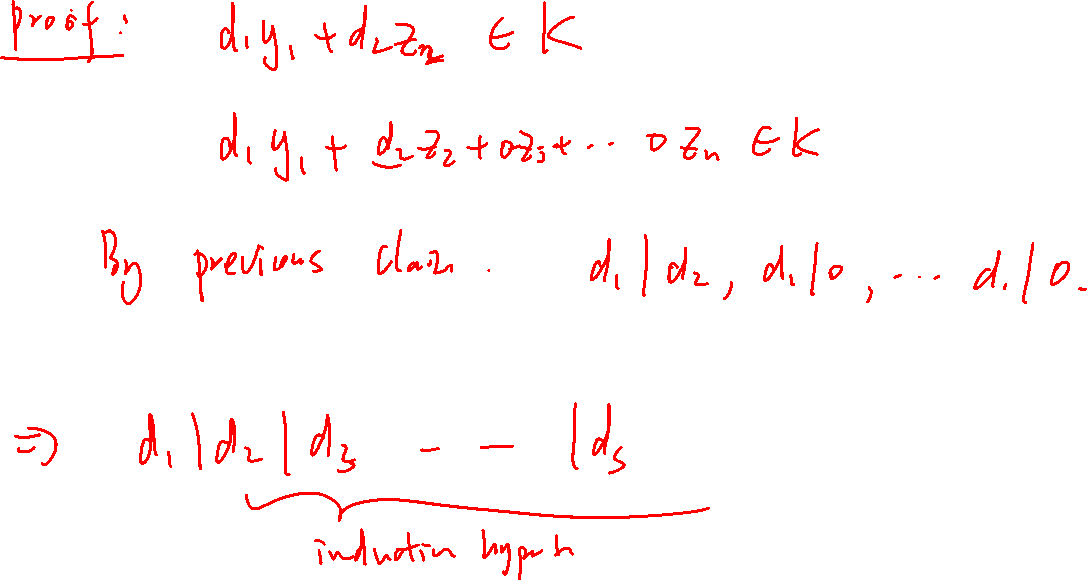 proof: d₁y₁ + d₂z₂ ∈ K
d₁y₁ + d₂z₂ + 0z₃ + ·· 0zₙ ∈ K
By previous claim. d₁ | d₂, d₁ | 0, ... d₁ | 0.
⇒ d₁ | d₂ | d₃ - - | ds
induction hypoth